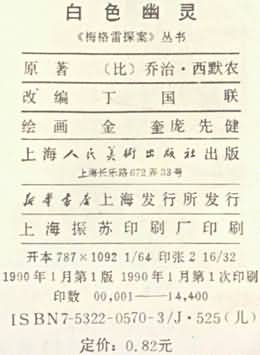 白色幽灵
《梅格雷探案》丛书
原著 （比）乔治·西默农
改编 丁国联
绘画 金奎 庞先健
上海人民美術出版社出版
上海长乐路672弄33号
新华書店上海发行所发行
上海振苏印刷厂印刷
开本787×1092 1/64 印张2 16/32
1990年1月第1版 1990年1月第1次印刷
印数 00,001——14,400
ISBN7-5322-0570-3/J·525(儿)
定价：0.82元